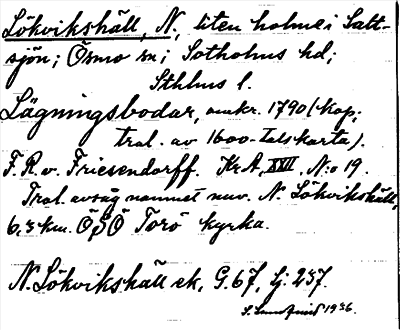 Lökvikshäll, N., liten holme i Salt-
sjön; Ösmo sn; Sotholms hd;
Sthlms l.
Lägningsbodar, omkr. 1790 (kop.
tral. av 1600-talskarta).
F. R. v. Friesendorff. KrA, XVII, N:o 19.
Tral. avsåg namnet nuv. N. Lökvikshäll,
6,3 km. ÖSÖ Torö kyrka.
N. Lökvikshäll ek, G. 67, Lj. 237.
1936.